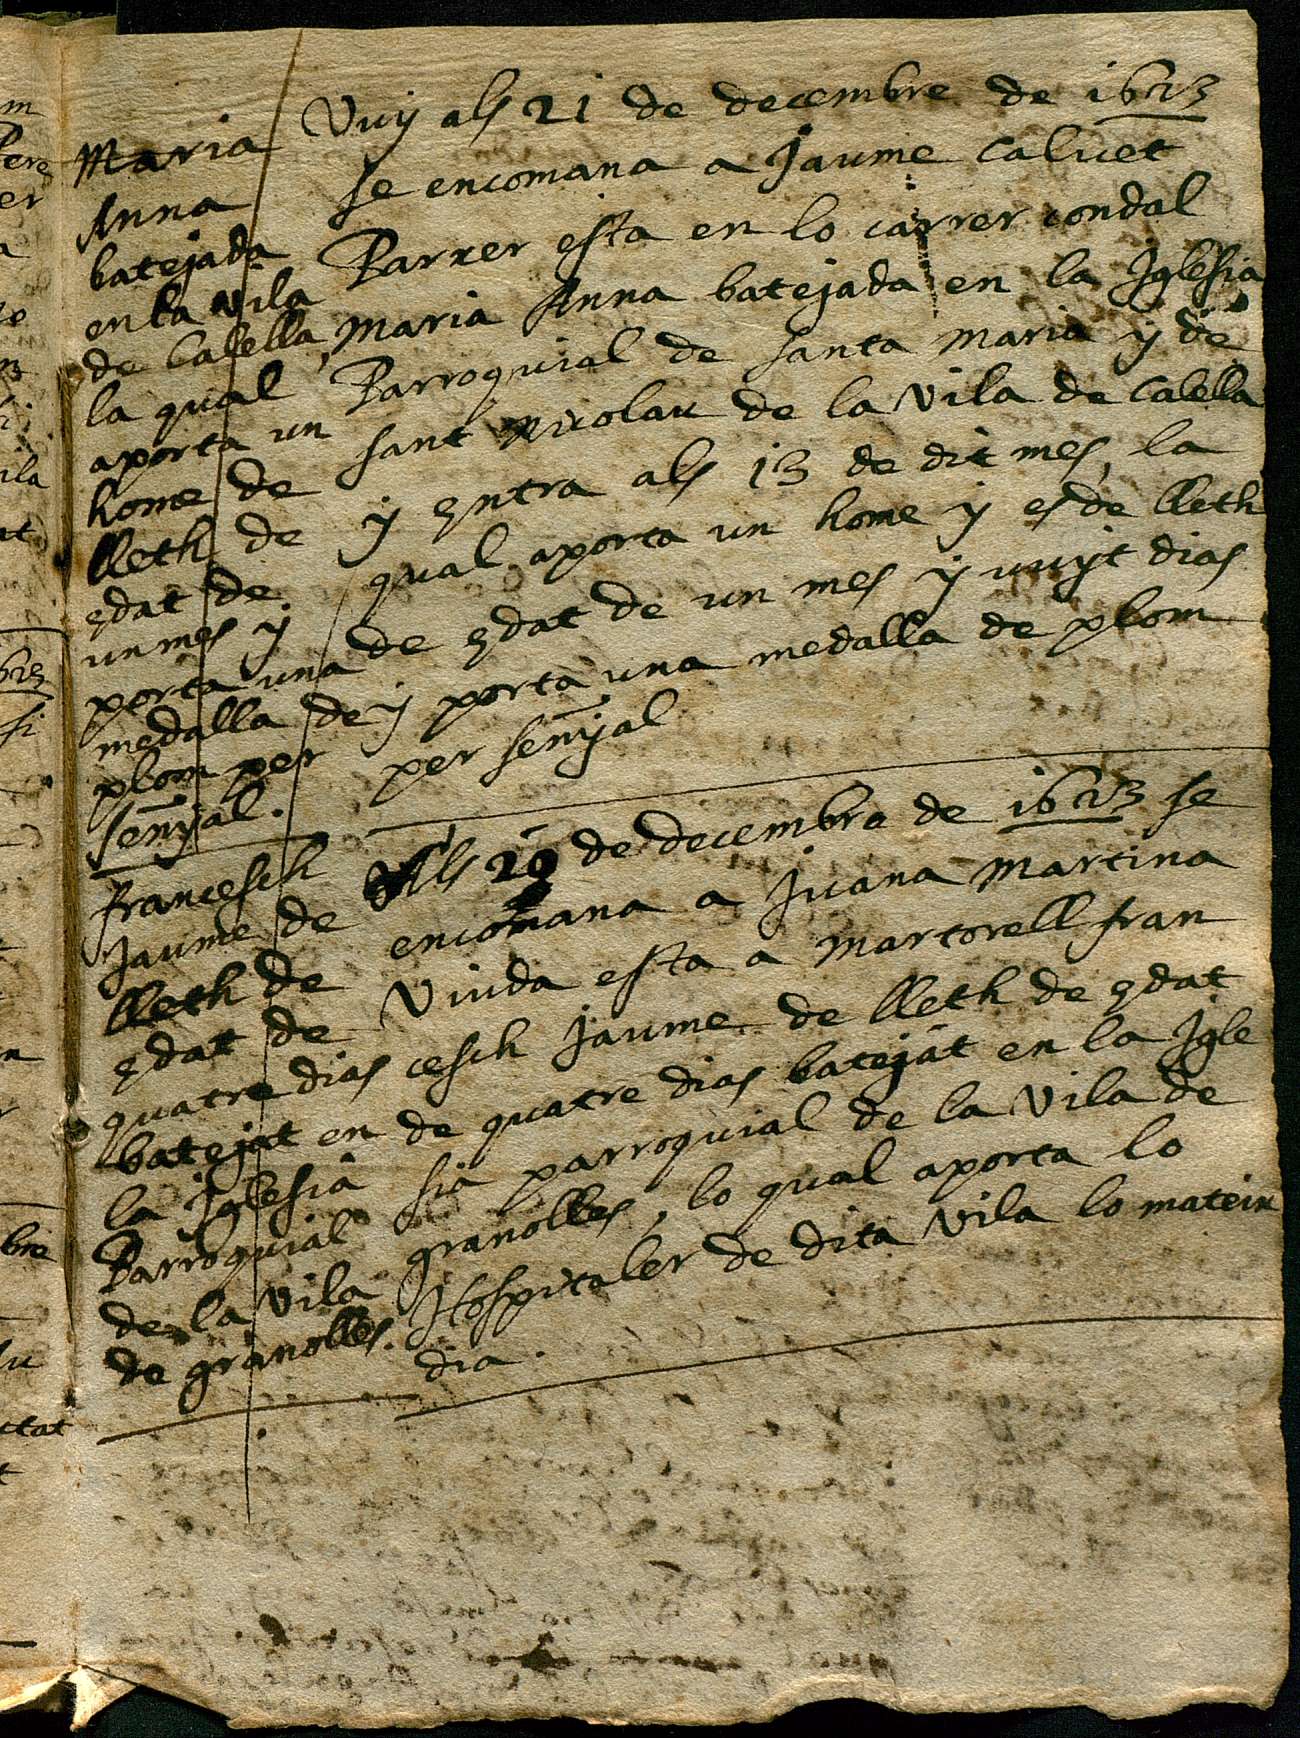 Maria
Anna
batejada
en la vila
de Calella
la qual
aporta un
home de
lleth de
edat de
un mes y
porta una
medalla de
plom per
señyal.
Vuy als 21 de decembre de 1623
se encomana a Jaume Calvet
Barrer esta en lo carrer condal
Maria Anna batejada en la Iglesia
Parroquial de santa maria y de
sant Nicolau de la Vila de Calella
y entra als 13 de dit mes, la
qual aporta un home y es de lleth
de edat de un mes y vuyt dias
y porta una medalla de plom
per señyal
francesch
Jaume de
lleth de
edat de
quatre dias
batejat en
la Iglesia
Parroquial
de la Vila
de granolles.
Als 29 de decembre de 1623 se
encomana a Juana Martina
Viuda esta a Martorell fran
cesch Jaume de lleth de edat
de quatre dias batejat en la Igle
sia parroquial de la Vila de
granolles, lo qual aporta lo
Hospitaler de dita Vila lo mateix
dia.